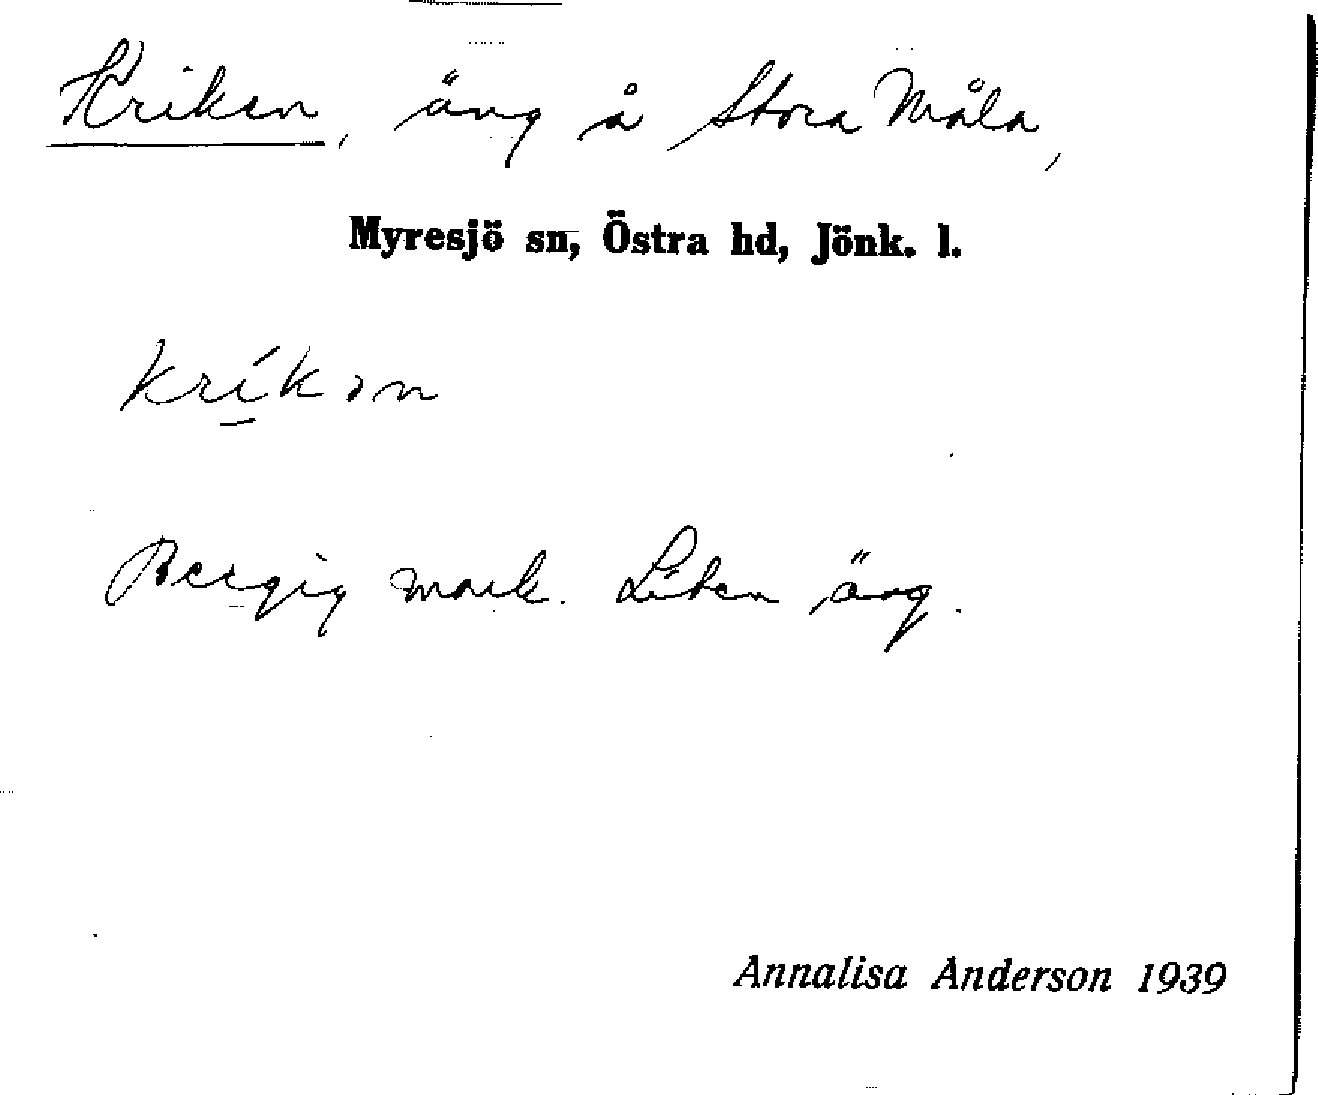 Kriken, äng å Stora Måla,
Myresjö sn, Östra hd, Jönk. l.
kríkən
Bergig mark. Liten äng.
Annalisa Anderson 1939